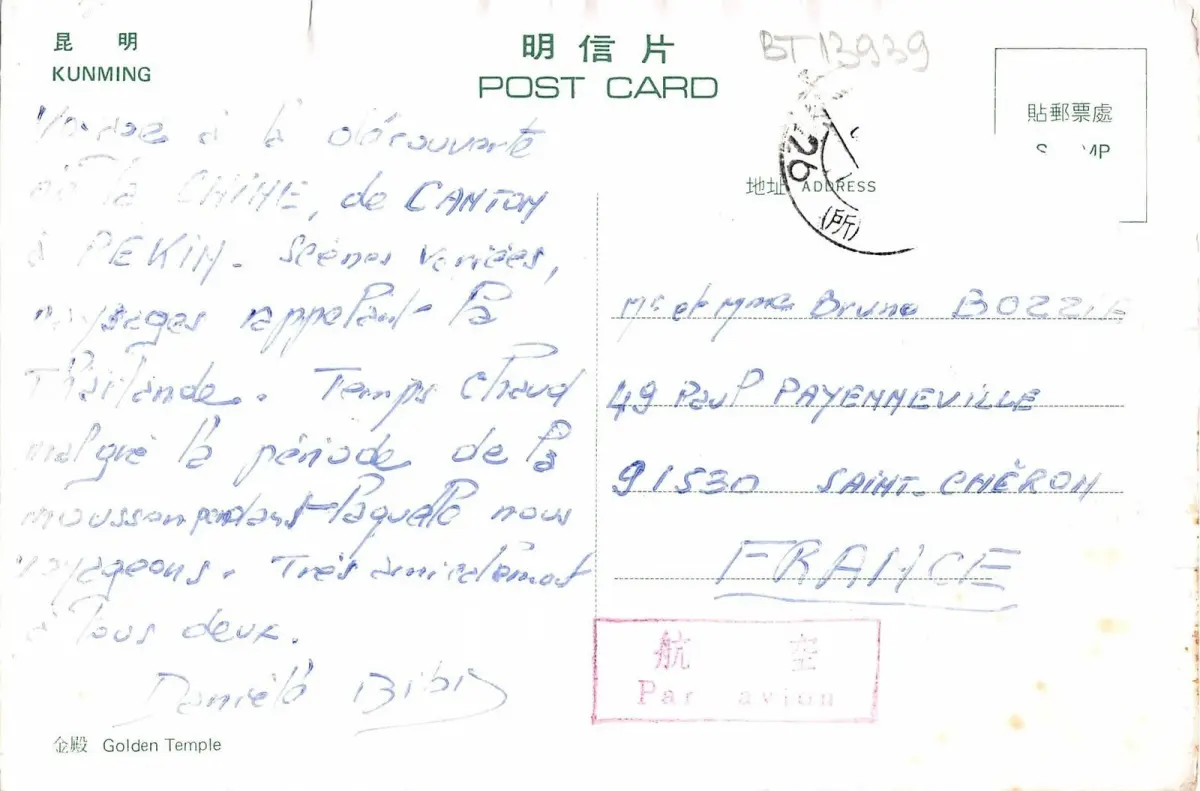 昆 明
KUNMING
明信片
POST CARD
BT 13939
貼郵票處
地址 ADDRESS
26
(所)
à la découverte
de la CHINE, de CANTON
à PEKIN. Scènes variées,
paysages rappelant la
Thaïlande. Temps chaud
malgré la période de la
mousson pendant laquelle nous
voyageons. Très amicalement
à tous deux.
Danièle
Mr et Mme Bruno
49 Paul PAYENNEVILLE
91530 SAINT-CHÉRON
FRANCE
航 空
Par avion
金殿 Golden Temple